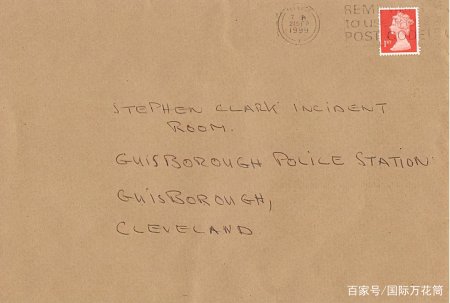 REM
to us
POST CODE
1999
1st
STEPHEN CLARK INCIDENT
ROOM.
GUISBOROUGH POLICE STATION
GUISBOROUGH,
CLEVELAND
百家号/国际万花筒